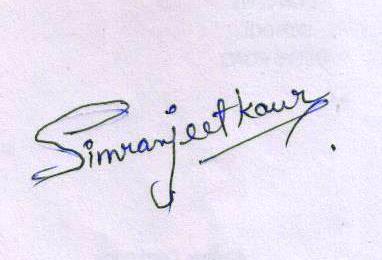 Simranjeet kaur